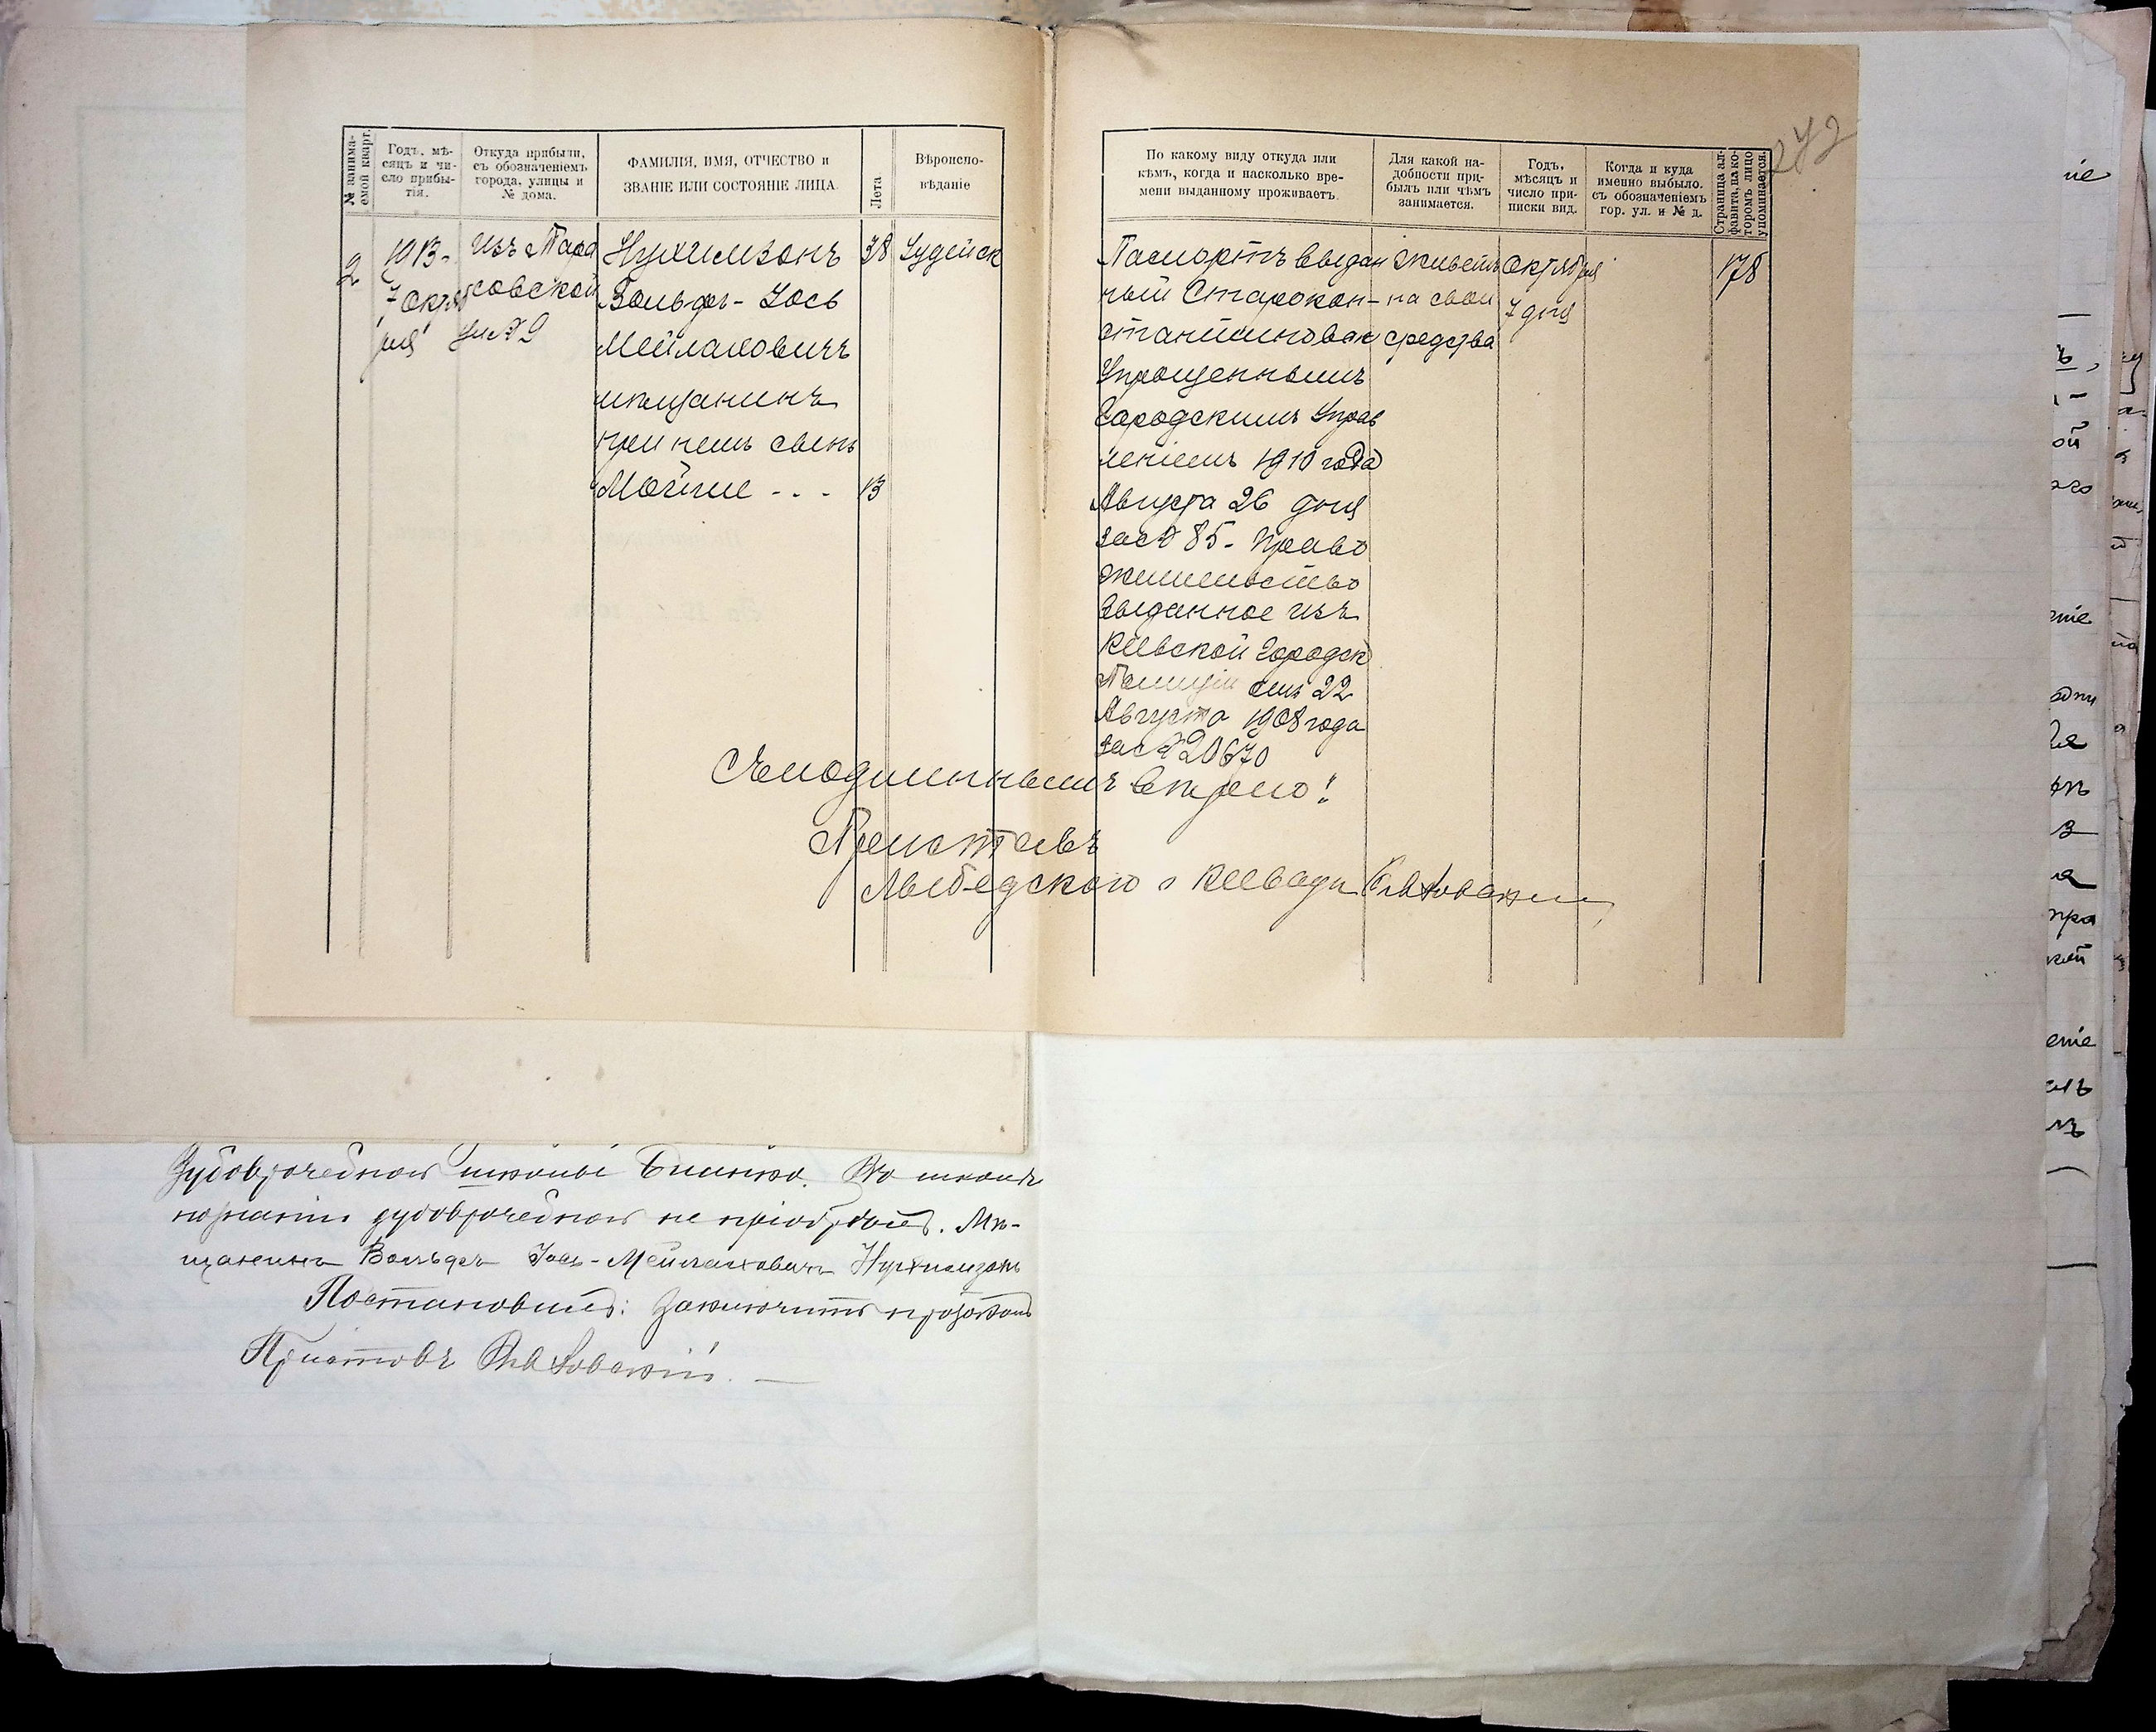 272
№ занима-
емой кварт.
Годъ, мѣ-
сяцъ и чи-
сло прибы-
тія.
Откуда прибыли,
съ обозначеніемъ
города, улицы и
№ дома.
ФАМИЛІЯ, ИМЯ, ОТЧЕСТВО и
ЗВАНІЕ ИЛИ СОСТОЯНІЕ ЛИЦА.
Лета
Вѣроиспо-
вѣданіе
2
1913-
7 Октяб
ря
изъ Тара
совской
ул № 9
Нухимзонъ
Вольфъ-Іось
Мейлаховичъ
мѣщанинъ
при немъ сынъ
Мойше - - -
38
13
Іудейск
По какому виду откуда или
кѣмъ, когда и насколько вре-
мени выданному проживаетъ.
Для какой на-
добности при-
былъ или чѣмъ
занимается.
Годъ,
мѣсяцъ и
число при-
писки вид.
Когда и куда
именно выбыло.
съ обозначеніемъ
гор. ул. и № д.
Страница ал-
фавита, на ко-
торомъ лицо
упоминается.
Паспортъ выдан
ный Старокон-
стантиновск
Упрощеннымъ
Городскимъ Управ
леніемъ 1910 года
Августа 26 дня
за № 85 - право
жительство
выданное изъ
Кіевской Городск
Полиціи отъ 22
Августа 1908 года
за № 20670
живетъ
на свои
средства
Октября
7 дня
178
Съ подлиннымъ вѣрно!
Приставъ
Лыбедского
зубоврачебной школы Бланко. Въ школѣ
познаній зубоврачебной не пріобрѣлъ. Мѣ-
щанинъ Вольфъ Іось-Мейлаховичъ Нухимзонъ
Постановилъ: Заключить протоколъ
Приставъ